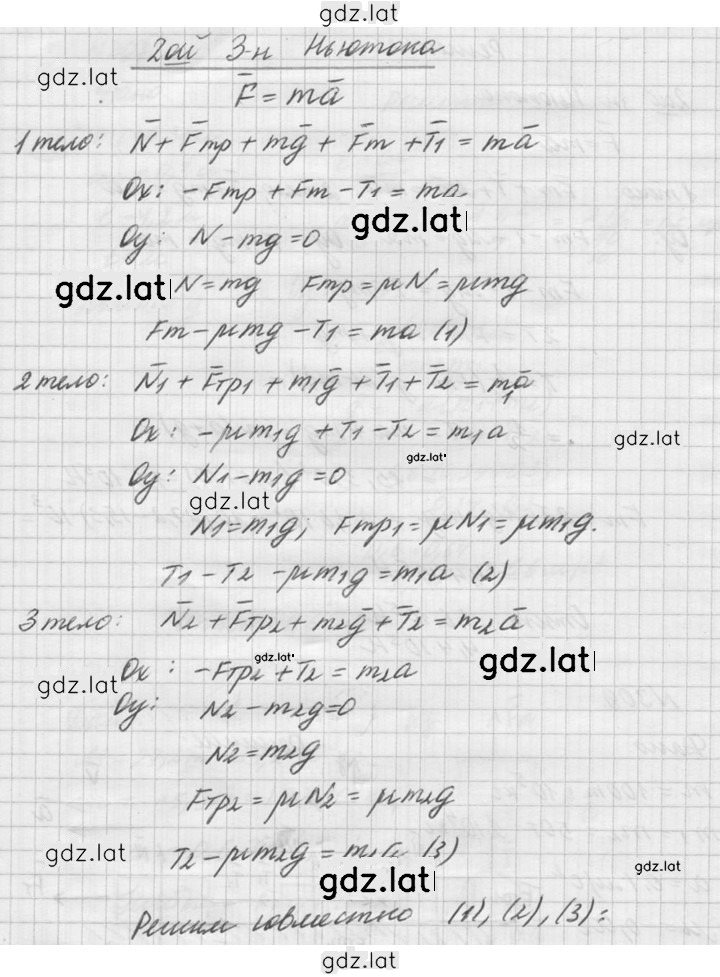 gdz.lat
2ой З-н Ньютона
gdz.lat
F̄ = mā
1 тело: N̄ + F̄тр + mḡ + F̄т + T̄1 = mā
Ox: -Fтр + Fт - T1 = ma
gdz.lat
Oy: N - mg = 0
gdz.lat
N = mg Fтр = μN = μmg
Fт - μmg - T1 = ma (1)
2 тело: N̄1 + F̄тр1 + m1ḡ + T̄1 + T̄2 = m1ā
Ox: -μm1g + T1 - T2 = m1a
gdz.lat
gdz.lat
Oy: N1 - m1g = 0
gdz.lat
N1 = m1g; Fтр1 = μN1 = μm1g.
T1 - T2 - μm1g = m1a (2)
3 тело: N̄2 + F̄тр2 + m2ḡ + T̄2 = m2ā
gdz.lat
gdz.lat
Ox: -Fтр2 + T2 = m2a
gdz.lat
Oy: N2 - m2g = 0
N2 = m2g
Fтр2 = μN2 = μm2g
gdz.lat
T2 - μm2g = m2a (3)
gdz.lat
gdz.lat
Решим совместно (1), (2), (3):
gdz.lat